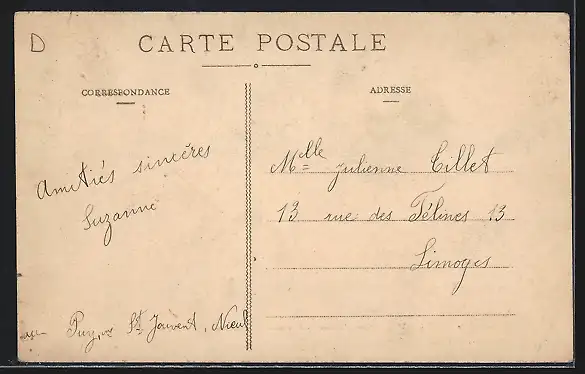 D
CARTE POSTALE
CORRESPONDANCE
ADRESSE
Amitiés sincères
Suzanne
Melle Julienne Tillet
13 rue des Félines 13
Limoges
St Jouvent, Nieul